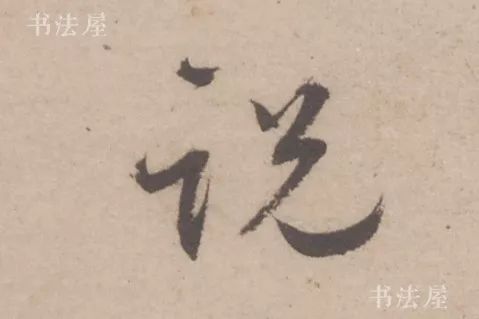 书法屋
说
书法屋